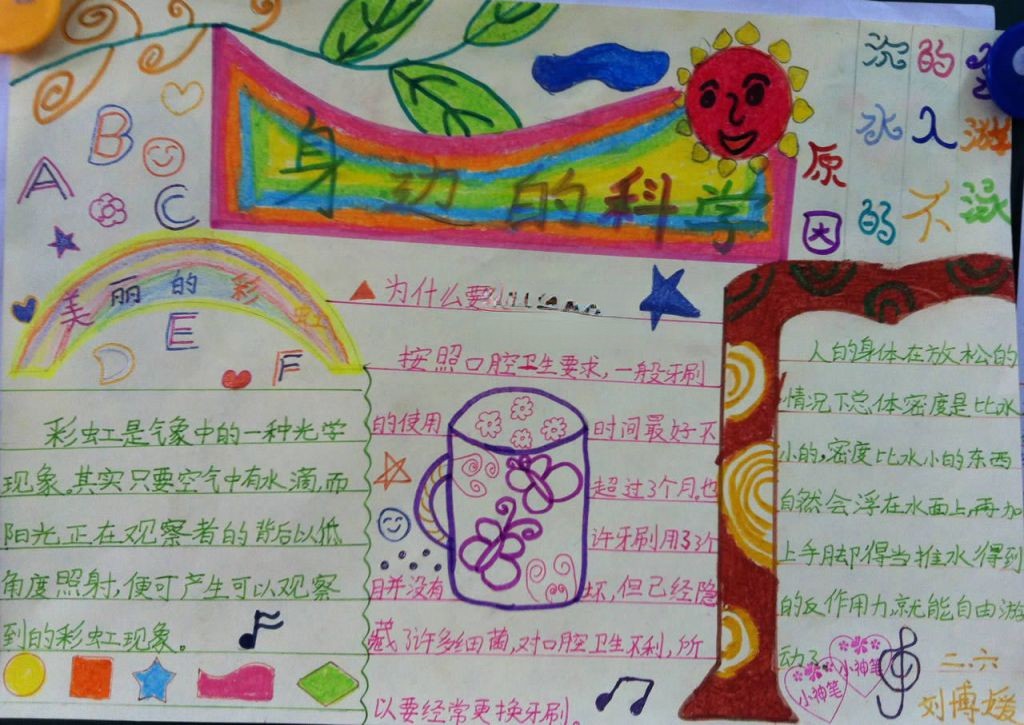 身边的科学
A
B
C
E
F
美丽的彩虹
彩虹是气象中的一种光学
现象。其实只要空气中有水滴,而
阳光正在观察者的背后以低
角度照射,便可产生可以观察
到的彩虹现象。
为什么要
按照口腔卫生要求,一般牙刷
的使用时间最好不
超过3个月。也
许牙刷用了3个
月并没有坏,但已经隐
藏了许多细菌,对口腔卫生不利,所
以要经常更换牙刷。
人入游泳
不沉的
水的
原因
人的身体在放松的
情况下总体密度是比水
小的,密度比水小的东西
自然会浮在水面上,再加
上手脚得当推水得到
的反作用力,就能自由游
动了。
小神笔
小神笔
二、六
刘博媛